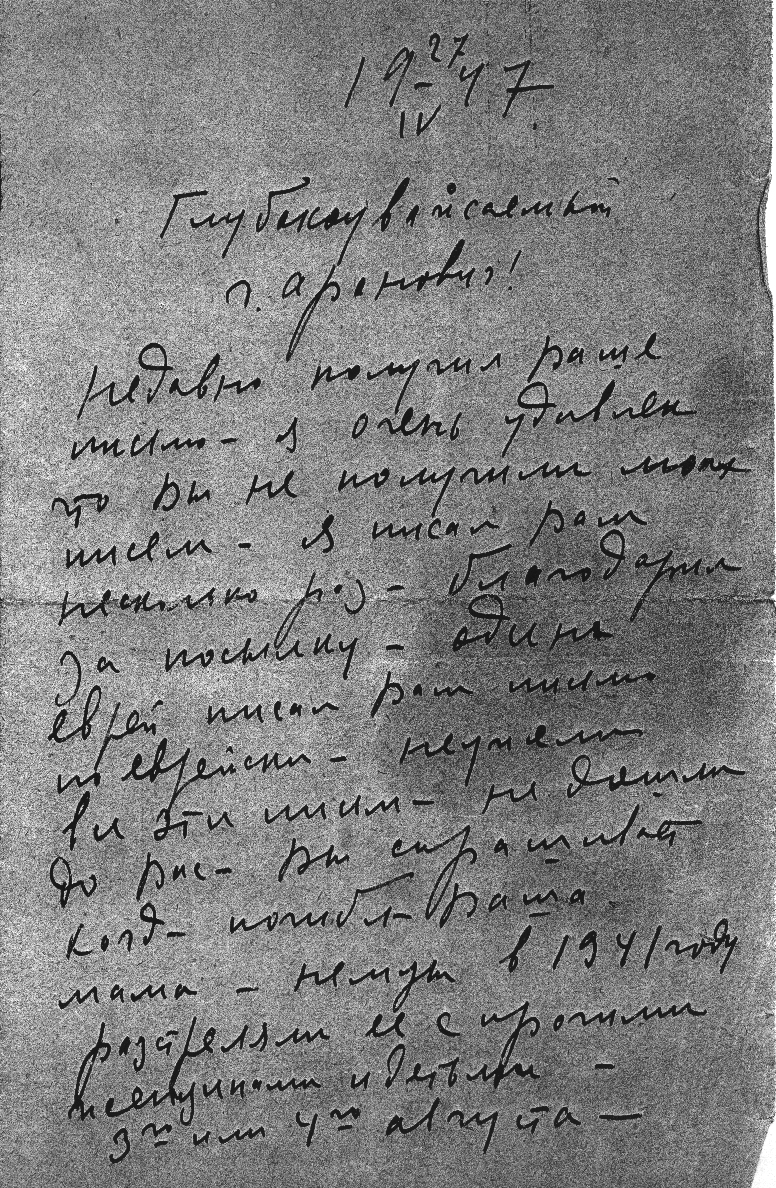 19 27/IV 47
Глубокоуважаемый
г. Аранович!
Недавно получил ваше
письмо – я очень удивлен
что вы не получили моих
писем – я писал вам
несколько раз – благодарил
за посылку – один
еврей писал вам письмо
по еврейски – неужели
все эти письма – не дошли
до вас – вы спрашивает
когда – погибла – ваша
мама – немцы в 1941 году
разстреляли ее с прочими
женщинами и детьми –
3го или 4го августа –